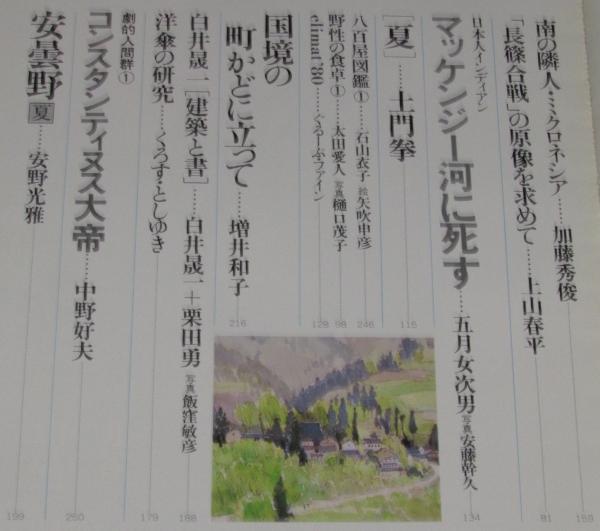 南の隣人・ミクロネシア……加藤秀俊
158
「長篠合戦」の原像を求めて……上山春平
81
日本人インディアン
マッケンジー河に死す……五月女次男 写真 安藤幹久
134
[夏]……土門拳
115
八百屋図鑑①……石山衣子 絵 矢吹申彦
246
野性の食卓①……太田愛人 写真 樋口茂子
98
climat '80……ぐるーぷ・ファイン
129
国境の
町かどに立って……増井和子
216
白井晟一[建築と書]……白井晟一+栗田勇 写真 飯窪敏彦
188
洋傘の研究……くろす・としゆき
179
劇的人間群①
コンスタンティヌス大帝……中野好夫
250
安曇野 夏……安野光雅
199